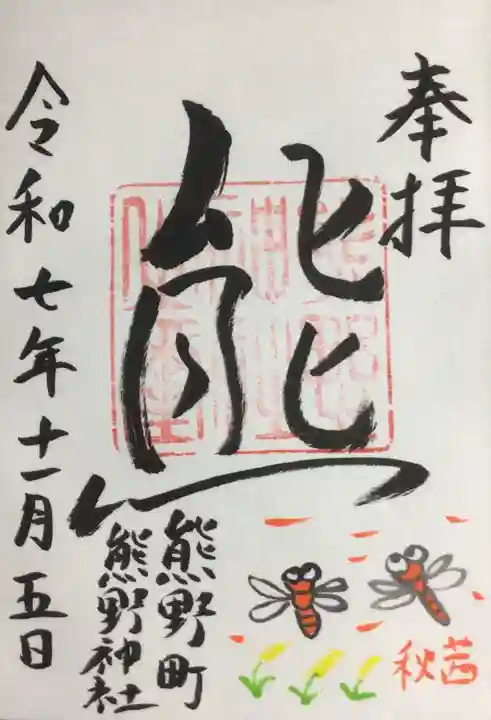 奉拝
熊
熊野町
熊野神社
令和七年十一月五日
秋茜